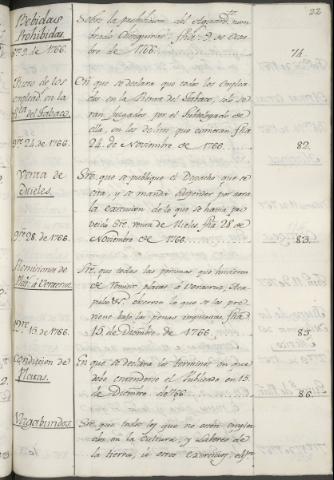 22
Bebidas
Prohibidas.
Sobre la prohibicion del Aguard.te nom-
brado Chinguirito: fha. 9 de Octu-
bre de 1766.
9 de 1766.
74.
Fuero de los
emplead.s en la
del Tabaco.
En que se declara que todos los emplea-
dos en la Renta del Tabaco, solo se-
ran juzgados por el Juzgado de
ella, en los delitos que cometan: fha
24 de Noviembre de 1766.
9re 24. de 1766.
82.
Venta de
Mieles.
Sre. que se publique el Despacho que se
cita, y se mande suspender por aora
la execucion de lo que se havia pre-
venido sre. venta de Mieles fha 28 de
Noviembre de 1766.
9re 28. de 1766.
83.
Remision de
Plat.s à Veracruz.
Sre. que todas las personas que hicieren
de remitir platas à Veracruz, Aca-
pulco &c. observen lo que se les pre-
viene bajo las penas impuestas fha
15. de Diciembre de 1766.
Xbre. 15. de 1766.
85.
Conducion de
Platas.
En que se declara los terminos en que
debe entenderse el publicado en 15.
de Diciembre de 766
86.
Vagabundos.
Sre. que todos los que no esten emplea-
dos en la cultura, y labores de
la tierra, ù otro exercicio,